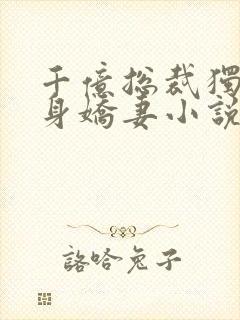 千億總裁獨
身嬌妻小說
詻哈兔子